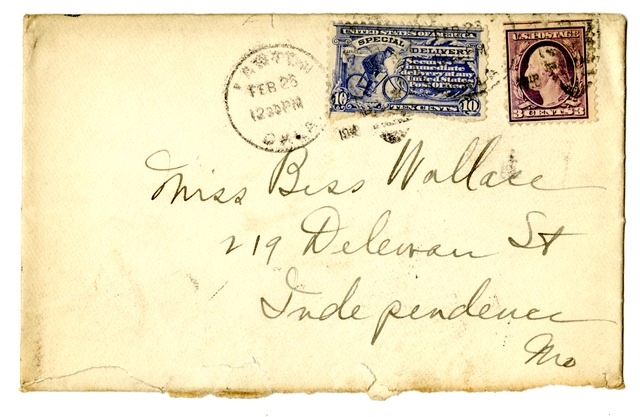 LAWTON
FEB 26
12 30 PM
OKLA
UNITED STATES OF AMERICA
SPECIAL DELIVERY
Secures
immediate
delivery at any
United States
Post Office
10 TEN CENTS 10
U.S. POSTAGE
3 CENTS 3
Miss Bess Wallace
219 Delewan St
Independence
Mo